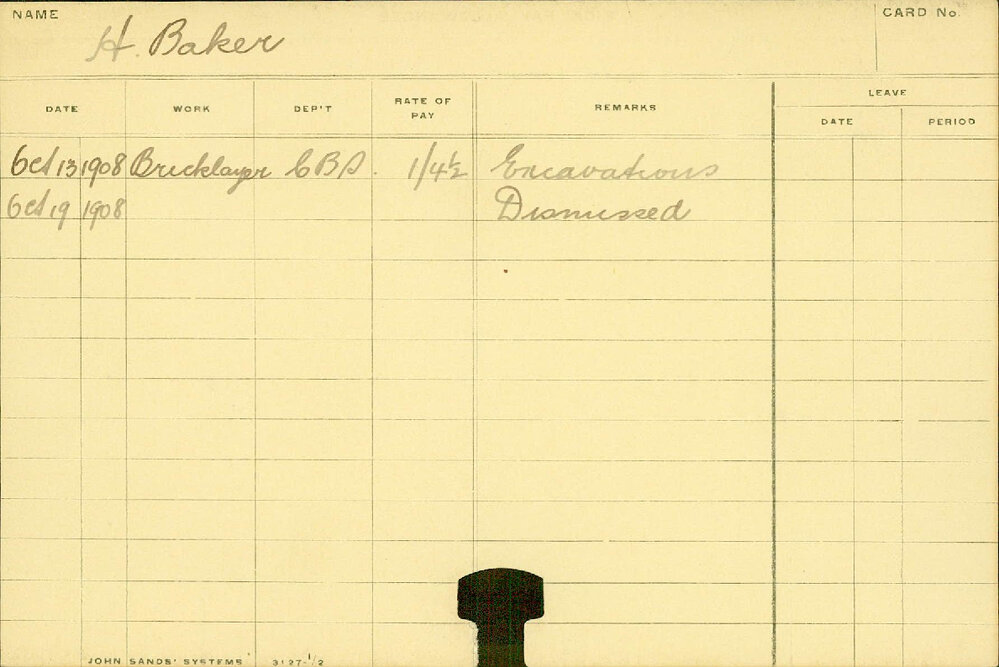 NAME
H. Baker
CARD No.
DATE WORK DEP'T RATE OF PAY REMARKS LEAVE
DATE PERIOD
Oct 13 1908 Bricklayer C.B.D. 1/4½ Excavations
Oct 19 1908 Dismissed
JOHN SANDS' SYSTEMS 3127-1/2